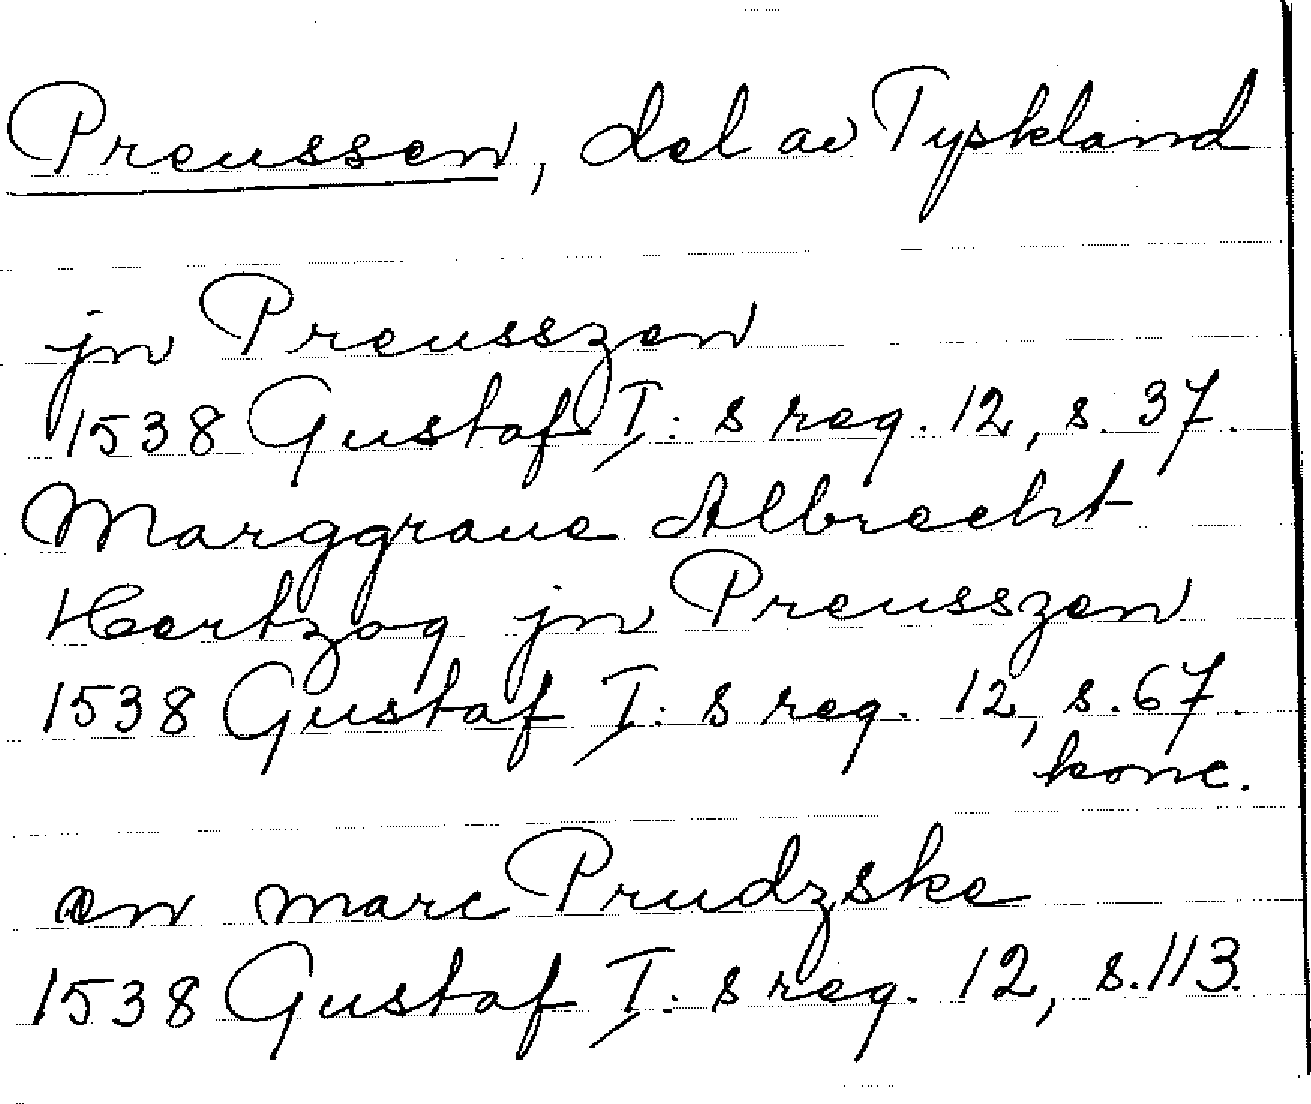 Preussen, del av Tyskland
jn Preusszen
1538 Gustaf I: s reg. 12, s. 37.
Marggraue Albrecht
Hertzog jn Preusszen
1538 Gustaf I: s reg. 12, s. 67.
konc.
en marc Prudzske
1538 Gustaf I: s reg. 12, s. 113.